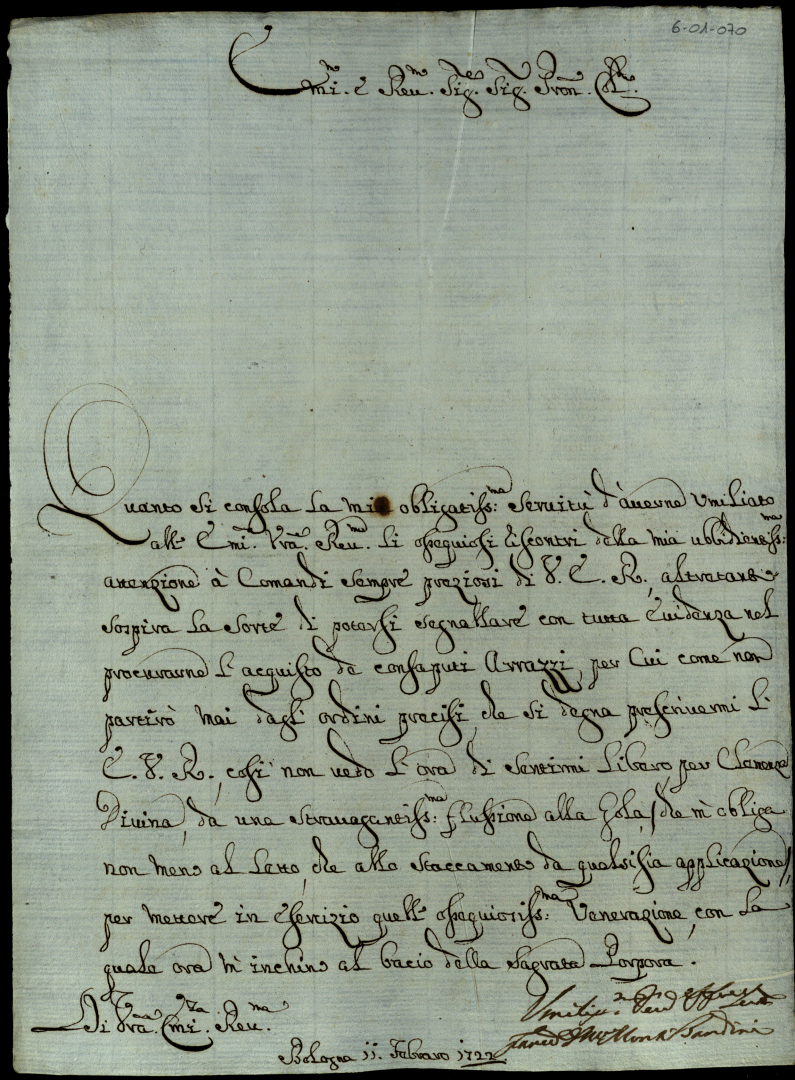 6-01-070
Emi.mo e Reu.mo Sig.re Sig.r Pron. Col.mo
Quanto si consola la mia obligatiss:ma seruitù d'auerne Vmiliato
all' Emi.a Vra. Reu.ma li ossequiosi riscontri della mia ubbidientiss:ma
attenzione à Comandi sempre preziosi di V. E. R., altretante
sospira la sorte di potersi segnallare con tutta Euidenza nel
procurarne l'acquisto de consaputi Arrazzi, per cui come non
partirò mai dagl'ordini precisi, che si degna prescriuermi l'
E. V. R., cosi non vedo l'ora di sentirmi libero, per Clemenza
Diuina, da una strauagantiss:ma flussione alla Gola (che m'obliga
non meno al letto, che allo staccamento da qualsisia applicazione)
per mettere in esercizio quell' ossequiosiss:ma Venerazione, con la
quale ora m'inchino al bacio della Sagrata Porpora.
Di Vra. Emi.za Reu.ma
Bologna 11. Febraro 1722